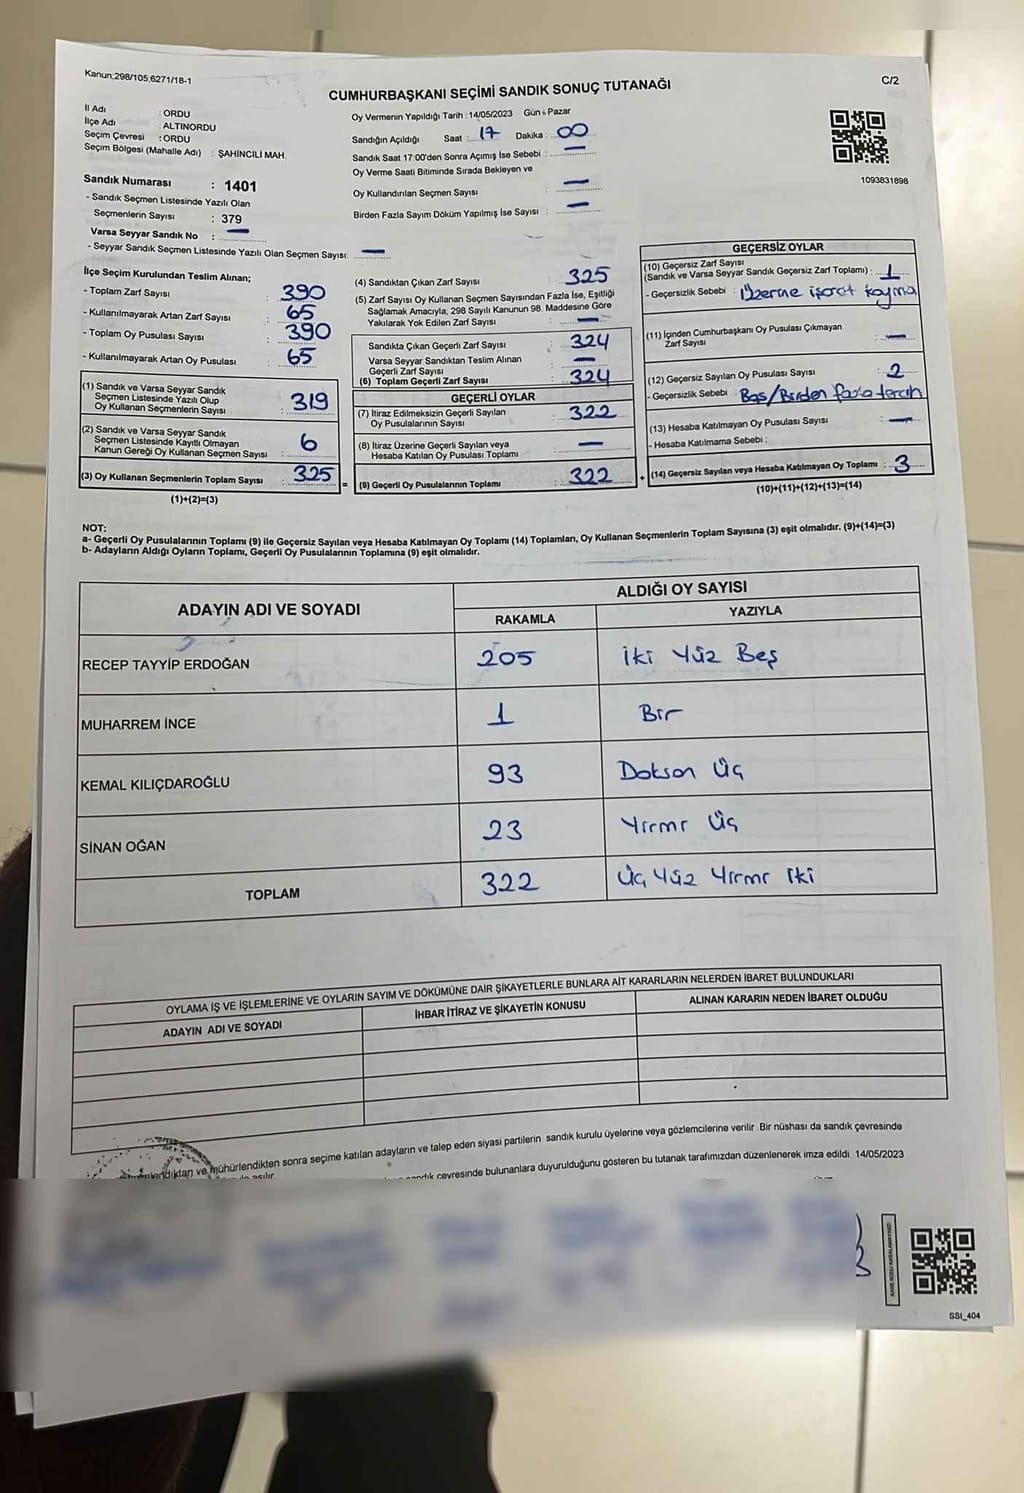 Kanun;298/105,6271/18-1
C/2
CUMHURBAŞKANI SEÇİMİ SANDIK SONUÇ TUTANAĞI
İl Adı : ORDU
İlçe Adı : ALTINORDU
Seçim Çevresi : ORDU
Seçim Bölgesi (Mahalle Adı) : ŞAHİNCİLİ MAH.
Sandık Numarası : 1401
- Sandık Seçmen Listesinde Yazılı Olan
Seçmenlerin Sayısı : 379
Varsa Seyyar Sandık No : —
- Seyyar Sandık Seçmen Listesinde Yazılı Olan Seçmen Sayısı: —
Oy Vermenin Yapıldığı Tarih : 14/05/2023 Gün : Pazar
Sandığın Açıldığı Saat : 17 Dakika : 00
Sandık Saat 17:00'den Sonra Açımış İse Sebebi : —
Oy Verme Saati Bitiminde Sırada Bekleyen ve
Oy Kullandırılan Seçmen Sayısı : —
Birden Fazla Sayım Döküm Yapılmış İse Sayısı : —
1093831898
İlçe Seçim Kurulundan Teslim Alınan;
- Toplam Zarf Sayısı : 390
- Kullanılmayarak Artan Zarf Sayısı : 65
- Toplam Oy Pusulası Sayısı : 390
- Kullanılmayarak Artan Oy Pusulası : 65
(1) Sandık ve Varsa Seyyar Sandık
Seçmen Listesinde Yazılı Olup
Oy Kullanan Seçmenlerin Sayısı : 319
(2) Sandık ve Varsa Seyyar Sandık
Seçmen Listesinde Kayıtlı Olmayan
Kanun Gereği Oy Kullanan Seçmen Sayısı : 6
(3) Oy Kullanan Seçmenlerin Toplam Sayısı : 325
(1)+(2)=(3)
(4) Sandıktan Çıkan Zarf Sayısı : 325
(5) Zarf Sayısı Oy Kullanan Seçmen Sayısından Fazla İse, Eşitliği
Sağlamak Amacıyla, 298 Sayılı Kanunun 98. Maddesine Göre
Yakılarak Yok Edilen Zarf Sayısı : —
Sandıkta Çıkan Geçerli Zarf Sayısı : 324
Varsa Seyyar Sandıktan Teslim Alınan
Geçerli Zarf Sayısı : —
(6) Toplam Geçerli Zarf Sayısı : 324
GEÇERLİ OYLAR
(7) İtiraz Edilmeksizin Geçerli Sayılan
Oy Pusulalarının Sayısı : 322
(8) İtiraz Üzerine Geçerli Sayılan veya
Hesaba Katılan Oy Pusulası Toplamı : —
= (9) Geçerli Oy Pusulalarının Toplamı : 322
GEÇERSİZ OYLAR
(10) Geçersiz Zarf Sayısı
(Sandık ve Varsa Seyyar Sandık Geçersiz Zarf Toplamı) : 1
- Geçersizlik Sebebi : Üzerine işaret koyma
(11) İçinden Cumhurbaşkanı Oy Pusulası Çıkmayan
Zarf Sayısı : —
(12) Geçersiz Sayılan Oy Pusulası Sayısı : 2
- Geçersizlik Sebebi : Boş/Birden fazla tercih
(13) Hesaba Katılmayan Oy Pusulası Sayısı : —
- Hesaba Katılmama Sebebi :
+ (14) Geçersiz Sayılan veya Hesaba Katılmayan Oy Toplamı : 3
(10)+(11)+(12)+(13)=(14)
NOT:
a- Geçerli Oy Pusulalarının Toplamı (9) ile Geçersiz Sayılan veya Hesaba Katılmayan Oy Toplamı (14) Toplamları, Oy Kullanan Seçmenlerin Toplam Sayısına (3) eşit olmalıdır. (9)+(14)=(3)
b- Adayların Aldığı Oyların Toplamı, Geçerli Oy Pusulalarının Toplamına (9) eşit olmalıdır.
ADAYIN ADI VE SOYADI
ALDIĞI OY SAYISI
RAKAMLA YAZIYLA
RECEP TAYYİP ERDOĞAN 205 İki Yüz Beş
MUHARREM İNCE 1 Bir
KEMAL KILIÇDAROĞLU 93 Doksan Üç
SİNAN OĞAN 23 Yirmi Üç
TOPLAM 322 Üç Yüz Yirmi İki
OYLAMA İŞ VE İŞLEMLERİNE VE OYLARIN SAYIM VE DÖKÜMÜNE DAİR ŞİKAYETLERLE BUNLARA AİT KARARLARIN NELERDEN İBARET BULUNDUKLARI
ADAYIN ADI VE SOYADI İHBAR İTİRAZ VE ŞİKAYETİN KONUSU ALINAN KARARIN NEDEN İBARET OLDUĞU
mühürlendikten sonra seçime katılan adayların ve talep eden siyasi partilerin sandık kurulu üyelerine veya gözlemcilerine verilir. Bir nüshası da sandık çevresinde
çevresinde bulunanlara duyurulduğunu gösteren bu tutanak tarafımızdan düzenlenerek imza edildi. 14/05/2023
SSI_404